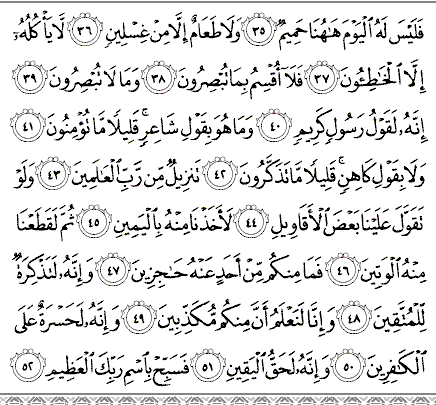 فَلَيْسَ لَهُ ٱلْيَوْمَ هَـٰهُنَا حَمِيمٌ ٣٥ وَلَا طَعَامٌ إِلَّا مِنْ غِسْلِينٍ ٣٦ لَّا يَأْكُلُهُۥٓ
إِلَّا ٱلْخَـٰطِـُٔونَ ٣٧ فَلَآ أُقْسِمُ بِمَا تُبْصِرُونَ ٣٨ وَمَا لَا تُبْصِرُونَ ٣٩
إِنَّهُۥ لَقَوْلُ رَسُولٍ كَرِيمٍ ٤٠ وَمَا هُوَ بِقَوْلِ شَاعِرٍ ۚ قَلِيلًا مَّا تُؤْمِنُونَ ٤١
وَلَا بِقَوْلِ كَاهِنٍ ۚ قَلِيلًا مَّا تَذَكَّرُونَ ٤٢ تَنزِيلٌ مِّن رَّبِّ ٱلْعَـٰلَمِينَ ٤٣ وَلَوْ
تَقَوَّلَ عَلَيْنَا بَعْضَ ٱلْأَقَاوِيلِ ٤٤ لَأَخَذْنَا مِنْهُ بِٱلْيَمِينِ ٤٥ ثُمَّ لَقَطَعْنَا
مِنْهُ ٱلْوَتِينَ ٤٦ فَمَا مِنكُم مِّنْ أَحَدٍ عَنْهُ حَـٰجِزِينَ ٤٧ وَإِنَّهُۥ لَتَذْكِرَةٌ
لِّلْمُتَّقِينَ ٤٨ وَإِنَّا لَنَعْلَمُ أَنَّ مِنكُم مُّكَذِّبِينَ ٤٩ وَإِنَّهُۥ لَحَسْرَةٌ عَلَى
ٱلْكَـٰفِرِينَ ٥٠ وَإِنَّهُۥ لَحَقُّ ٱلْيَقِينِ ٥١ فَسَبِّحْ بِٱسْمِ رَبِّكَ ٱلْعَظِيمِ ٥٢